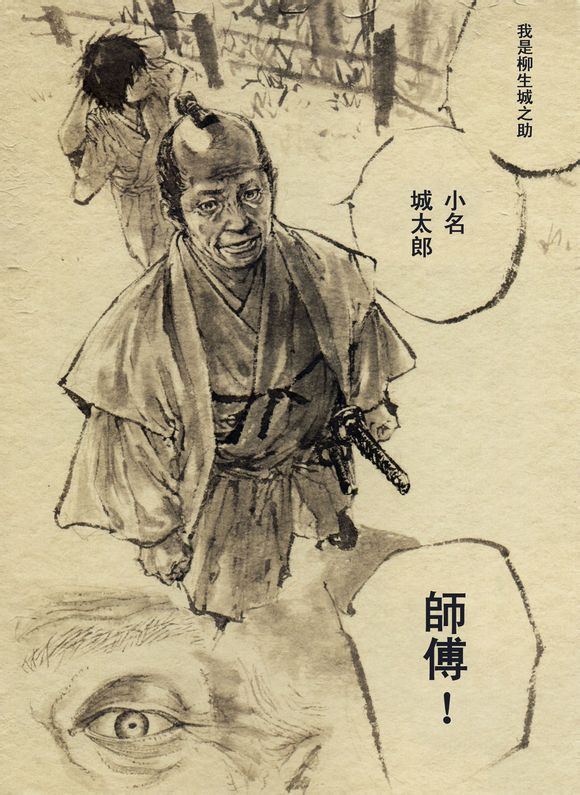 我是柳生城之助
小名
城太郎
師傅！